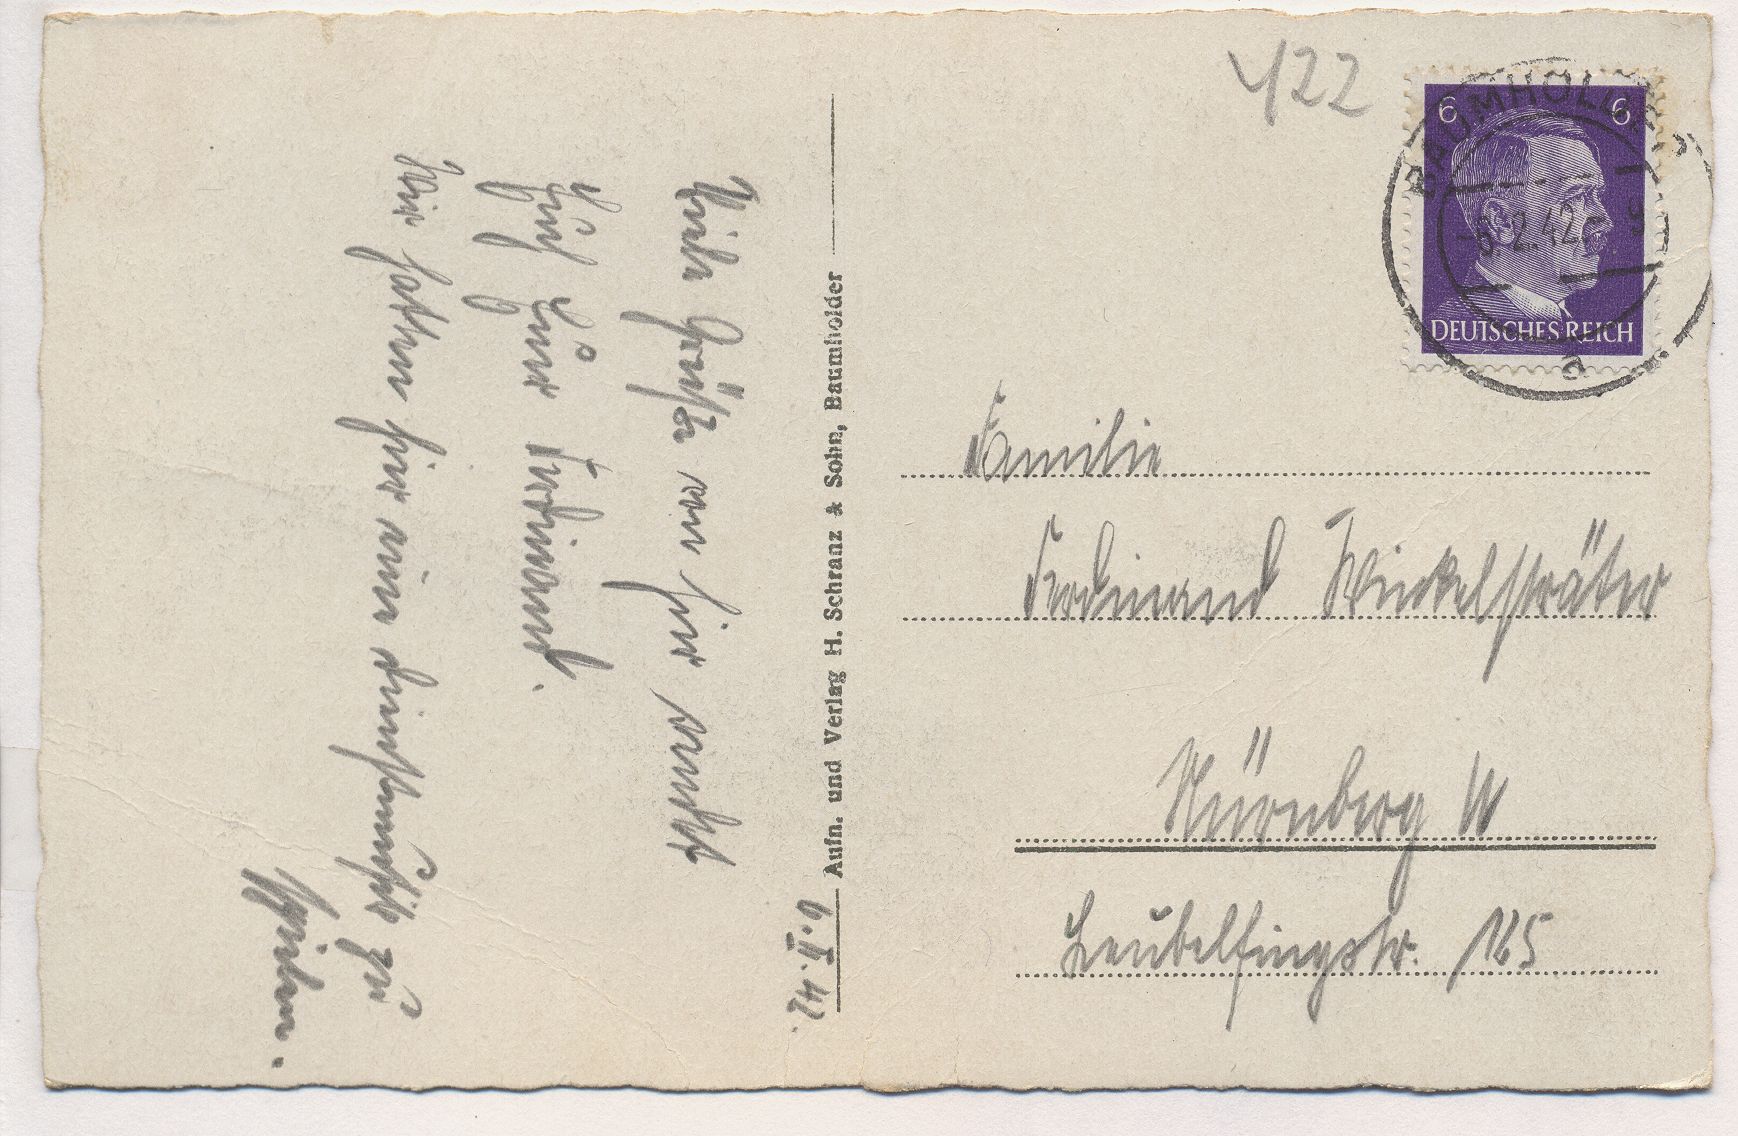 422
BAUMHOLDER
6 6
-6.2.42-
DEUTSCHES REICH
Familie
Ferdinand Winkelsträter
Nürnberg W
Leubelfingstr. 125
Aufn. und Verlag H. Schranz & Sohn, Baumholder
6.II.42.
Viele Grüße von hier sendet
Euch Euer Ferdinand.
Wir hatten hier eine
zu